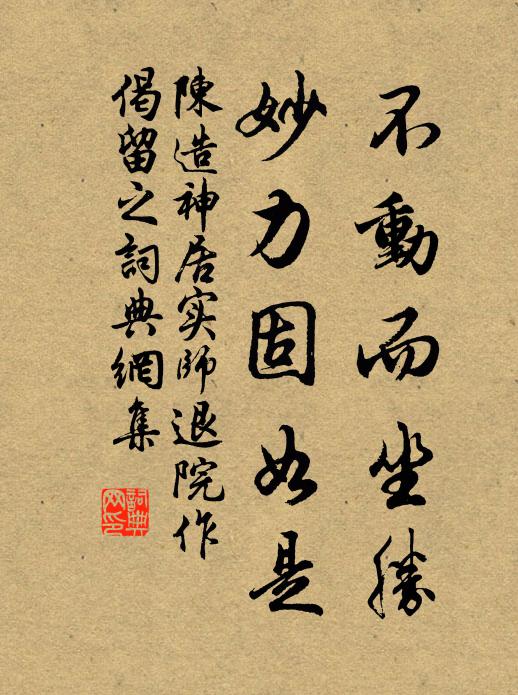 不動而坐勝
妙力固如是
陳造神居实師退院作
偈留之詞典網集
詞典网印